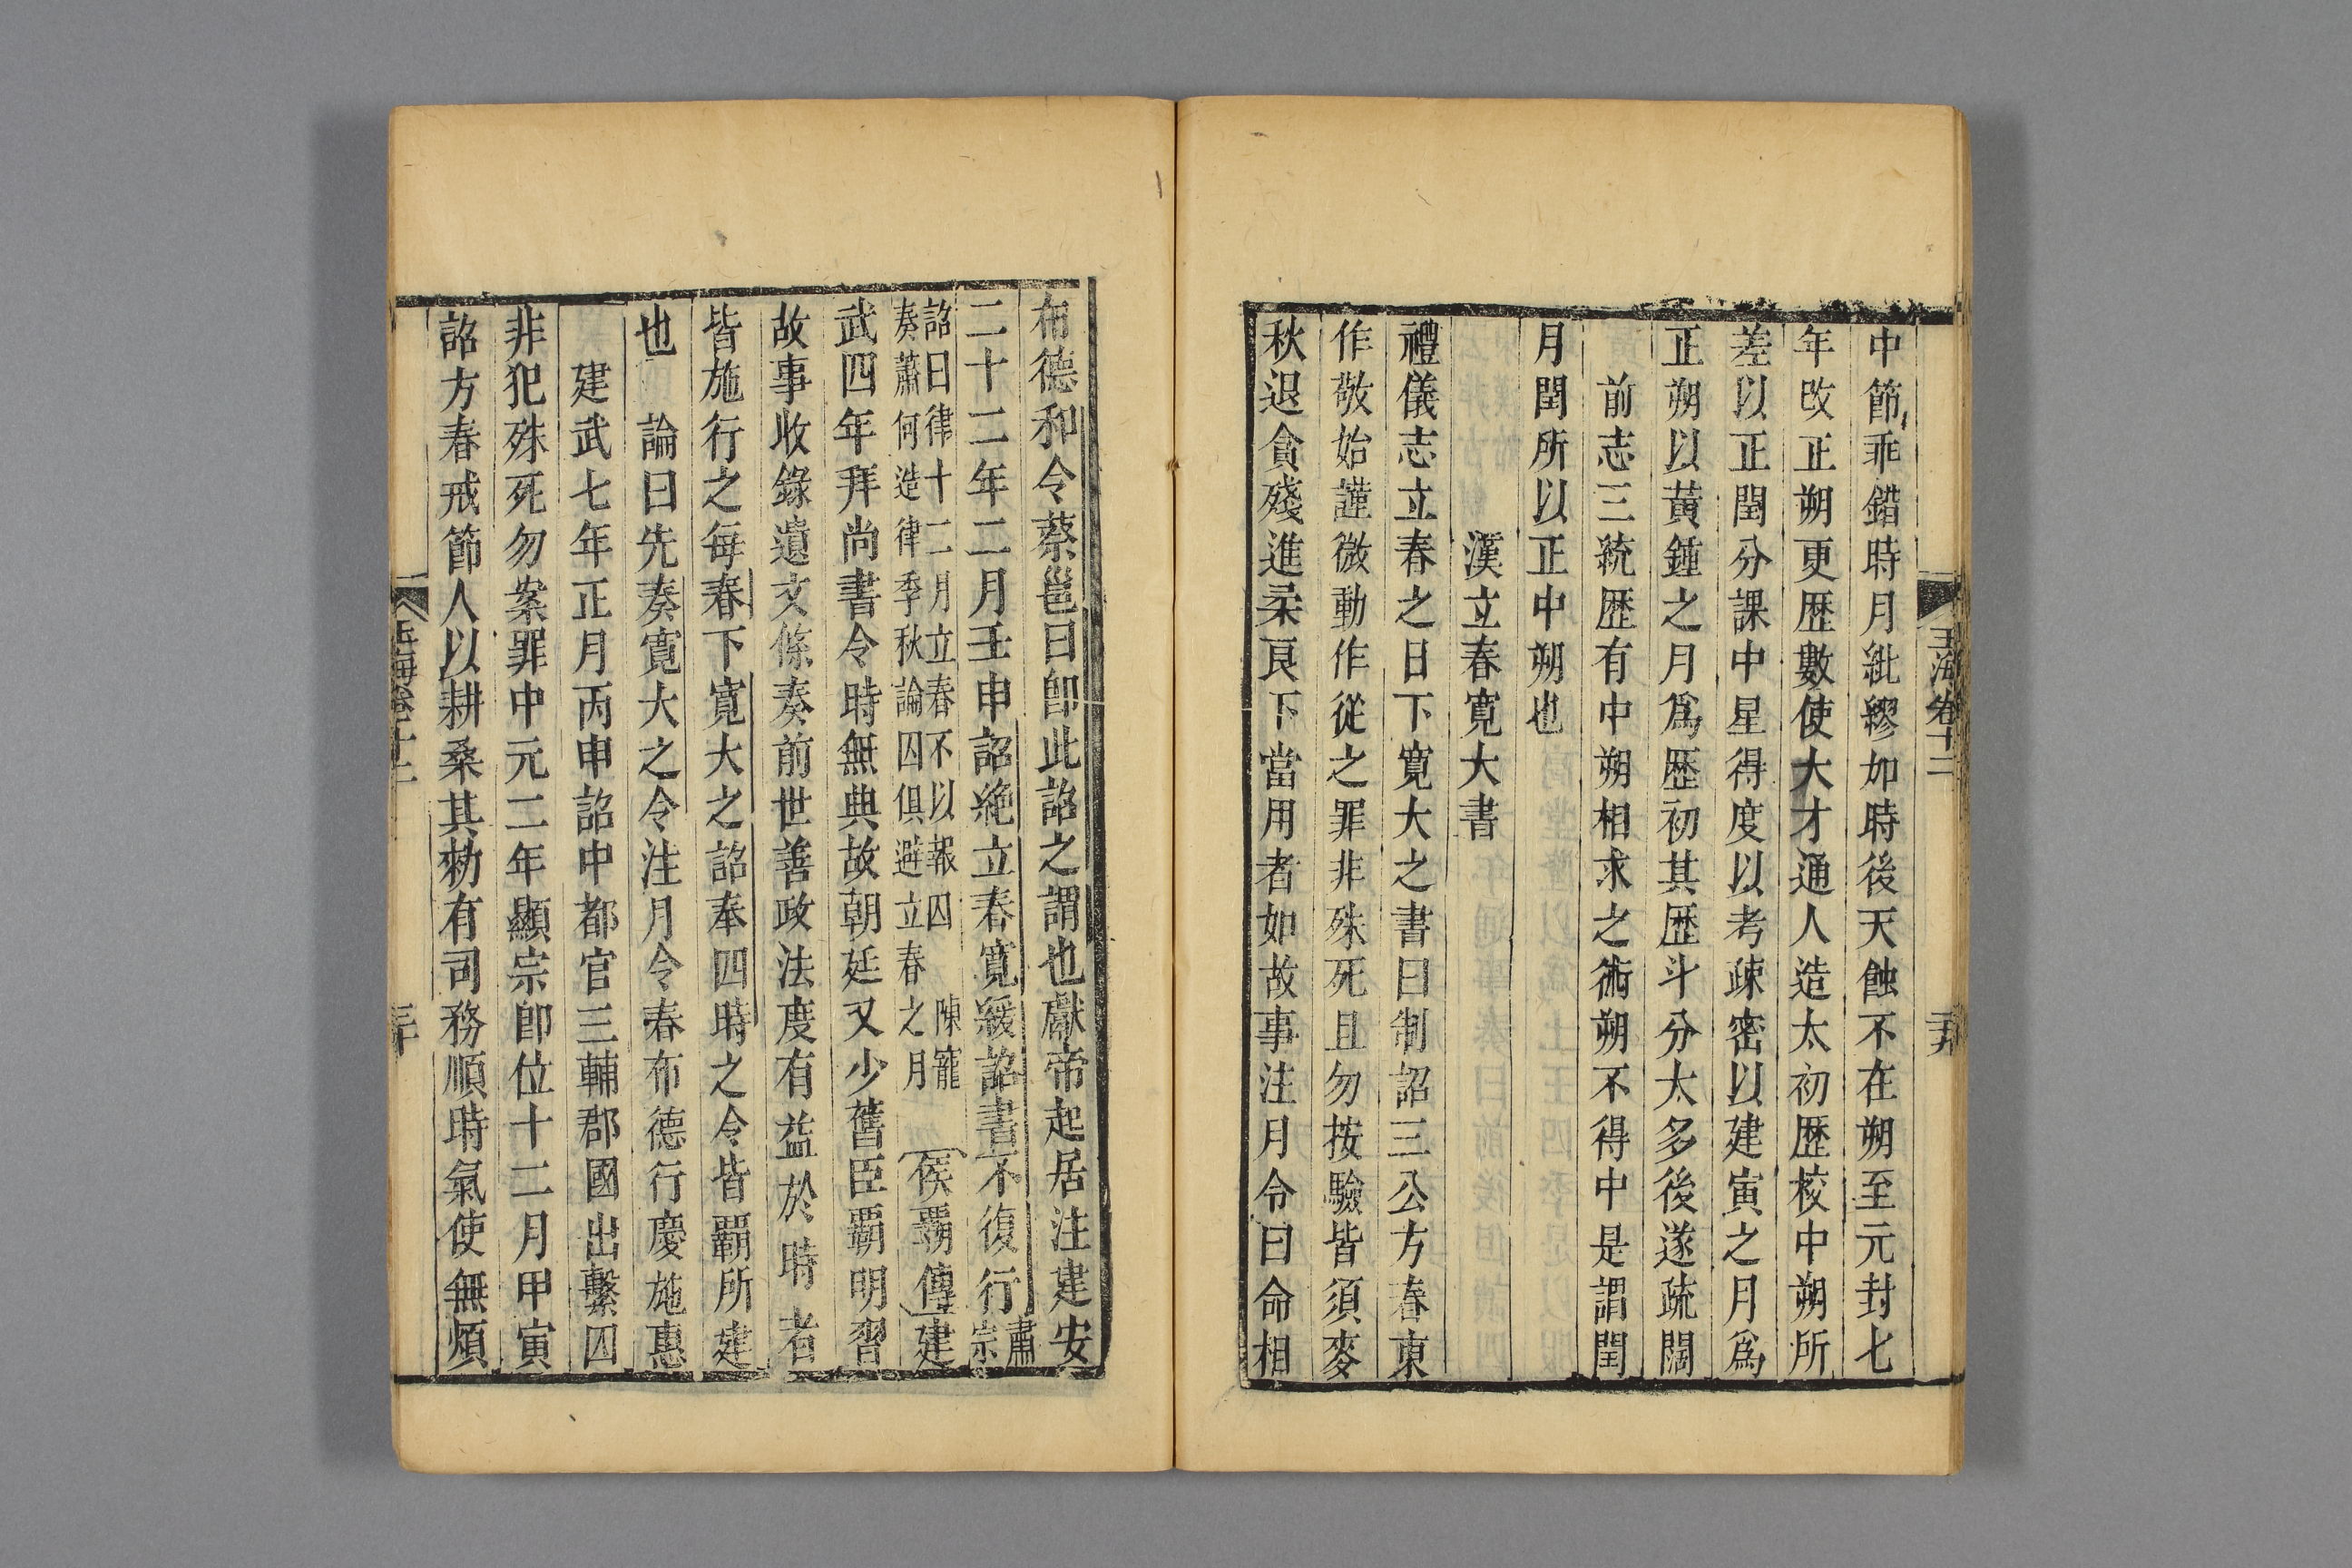 玉海卷十二
中節乖錯時月紕繆加時後天蝕不在朔至元封七
年改正朔更歴數使大才通人造太初歴校中朔所
差以正閏分課中星得度以考疎密以建寅之月爲
正朔以黃鍾之月爲歴初其歴斗分太多後遂疏闊
前志三統歴有中朔相求之術朔不得中是謂閏
月閏所以正中朔也
漢立春寛大書
禮儀志立春之日下寛大之書曰制詔三公方春東
作敬始謹微動作從之罪非殊死且勿按驗皆須麥
秋退貪殘進柔良下當用者如故事注月令曰命相
布德和令蔡邕曰卽此詔之謂也獻帝起居注建安
二十二年二月壬申詔絶立春寛緩詔書不復行肅宗
詔曰律十二月立春不以報囚 陳寵
奏蕭何造律季秋論囚俱避立春之月 侯覇傳建
武四年拜尚書令時無典故朝廷又少舊臣覇明習
故事收錄遺文條奏前世善政法度有益於時者
皆施行之每春下寛大之詔奉四時之令皆覇所建
也 論曰先奏寛大之令注月令春布德行慶施惠
建武七年正月丙申詔中都官三輔郡國出繫囚
非犯殊死勿案罪中元二年顯宗卽位十二月甲寅
詔方春戒節人以耕桑其勑有司務順時氣使無煩
玉海卷十二
三十